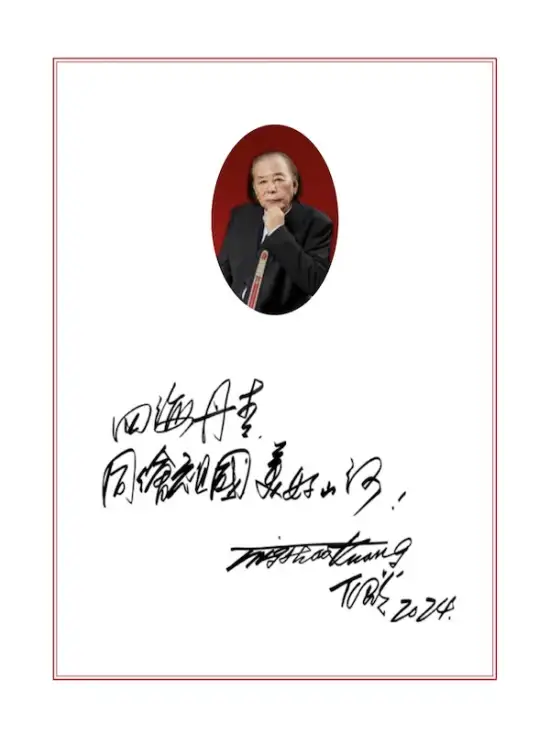 四海丹青
同繪祖國美好山河！
Ting Shao Kuang
丁绍光 2024.